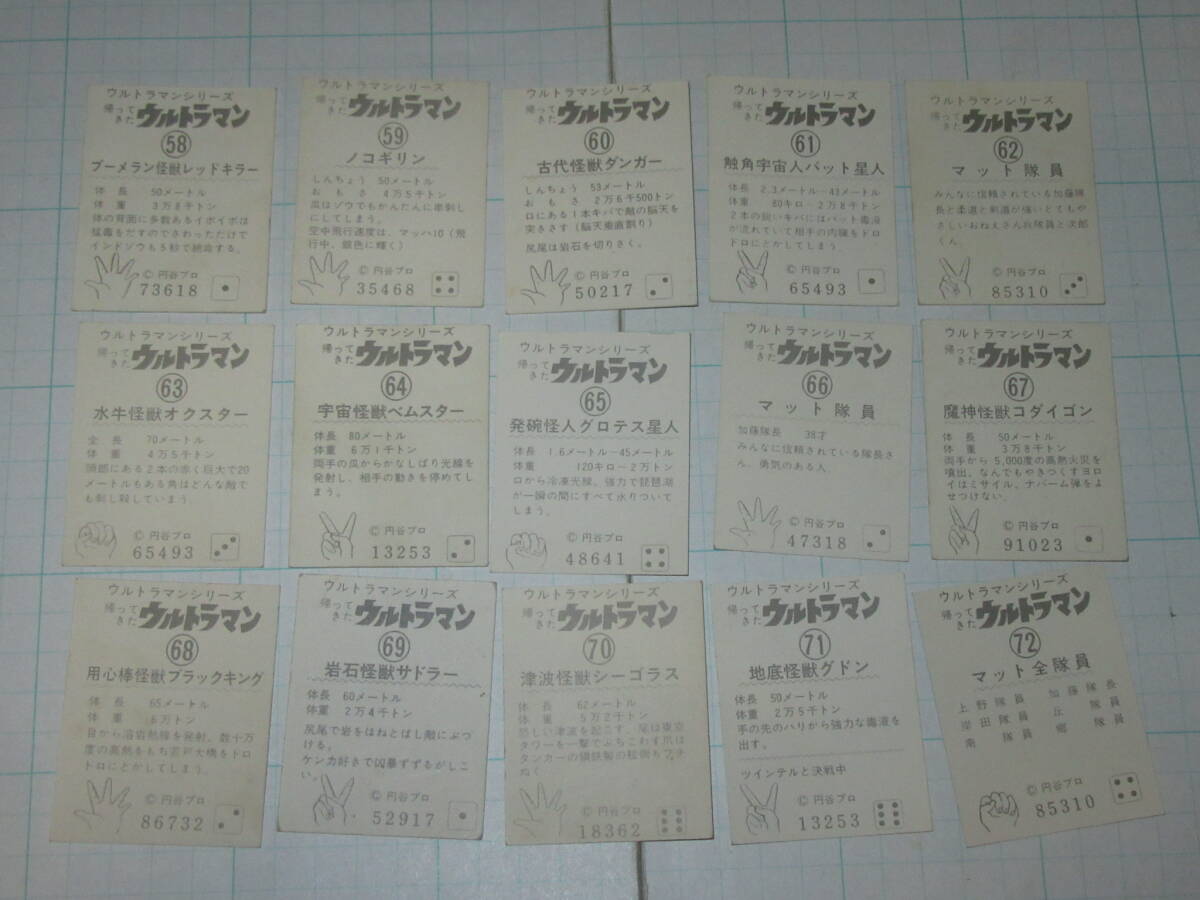 ウルトラマンシリーズ
帰ってきた ウルトラマン
58
ブーメラン怪獣レッドキラー
体長 50メートル
体重 3万8千トン
体の背面に多数あるイボイボは
猛毒をだすのでさわっただけで
インドゾウも5秒で絶命する。
©円谷プロ
73618
ウルトラマンシリーズ
帰ってきた ウルトラマン
59
ノコギリン
しんちょう 50メートル
おもさ 4万5千トン
爪はゾウでもかんたんに串刺し
にしてしまう。
空中飛行速度は、マッハ10（飛
行中、銀色に輝く）
©円谷プロ
35468
ウルトラマンシリーズ
帰ってきた ウルトラマン
60
古代怪獣ダンガー
しんちょう 53メートル
おもさ 2万6千500トン
口にある1本キバで敵の脳天を
突きさす（脳天垂直割り）
尻尾は岩石を切りさく。
©円谷プロ
50217
ウルトラマンシリーズ
帰ってきた ウルトラマン
61
触角宇宙人バット星人
体長 2.3メートル―43メートル
体重 80キロ―2万8千トン
2本の鋭いキバにはバット毒液
が流れていて相手の内臓をドロ
ドロにとかしてしまう。
©円谷プロ
65493
ウルトラマンシリーズ
帰ってきた ウルトラマン
62
マット隊員
みんなに信頼されている加藤隊
長と柔道と剣道が強いとてもや
さしいおねえさん丘隊員と次郎
くん。
©円谷プロ
85310
ウルトラマンシリーズ
帰ってきた ウルトラマン
63
水牛怪獣オクスター
全長 70メートル
体重 4万5千トン
頭部にある2本の赤く巨大で20
メートルもある角はどんな敵で
も刺し殺してしまう。
©円谷プロ
65493
ウルトラマンシリーズ
帰ってきた ウルトラマン
64
宇宙怪獣ベムスター
体長 80メートル
体重 6万1千トン
両手の爪からかなしばり光線を
発射し、相手の動きを停めてし
まう。
©円谷プロ
13253
ウルトラマンシリーズ
帰ってきた ウルトラマン
65
発碗怪人グロテス星人
体長 1.6メートル―45メートル
体重 120キロ―2万トン
口から冷凍光線、強力で琵琶湖
が一瞬の間にすべて氷りついて
しまう。
©円谷プロ
48641
ウルトラマンシリーズ
帰ってきた ウルトラマン
66
マット隊員
加藤隊長 38才
みんなに信頼されている隊長さ
ん、勇気のある人。
©円谷プロ
47318
ウルトラマンシリーズ
帰ってきた ウルトラマン
67
魔神怪獣コダイゴン
体長 50メートル
体重 3万8千トン
両手から5,000度の高熱火災を
噴出、なんでもやきつくすヨロ
イはミサイル、ナパーム弾をよ
せつけない。
©円谷プロ
91023
ウルトラマンシリーズ
帰ってきた ウルトラマン
68
用心棒怪獣ブラックキング
体長 65メートル
体重 6万トン
目から溶岩熱線を発射。数十万
度の高熱をもち若戸大橋をドロ
ドロにとかしてしまう。
©円谷プロ
86732
ウルトラマンシリーズ
帰ってきた ウルトラマン
69
岩石怪獣サドラー
体長 60メートル
体重 2万4千トン
尻尾で岩をはねとばし敵にぶつ
ける。
ケンカ好きで凶暴ずずるがしこ
い。
©円谷プロ
52917
ウルトラマンシリーズ
帰ってきた ウルトラマン
70
津波怪獣シーゴラス
体長 62メートル
体重 5万2千トン
恐しい津波を起こす。尾は東京
タワーを一撃でぶちこわす爪は
タンカーの鋼鉄製の
ぬく
©円谷プロ
18362
ウルトラマンシリーズ
帰ってきた ウルトラマン
71
地底怪獣グドン
体長 50メートル
体重 2万5千トン
手の先のハリから強力な毒液を
出す。
ツインテルと決戦中
©円谷プロ
13253
ウルトラマンシリーズ
帰ってきた ウルトラマン
72
マット全隊員
上野隊員 加藤隊長
岸田隊員 丘隊員
南隊員 郷隊員
©円谷プロ
85310